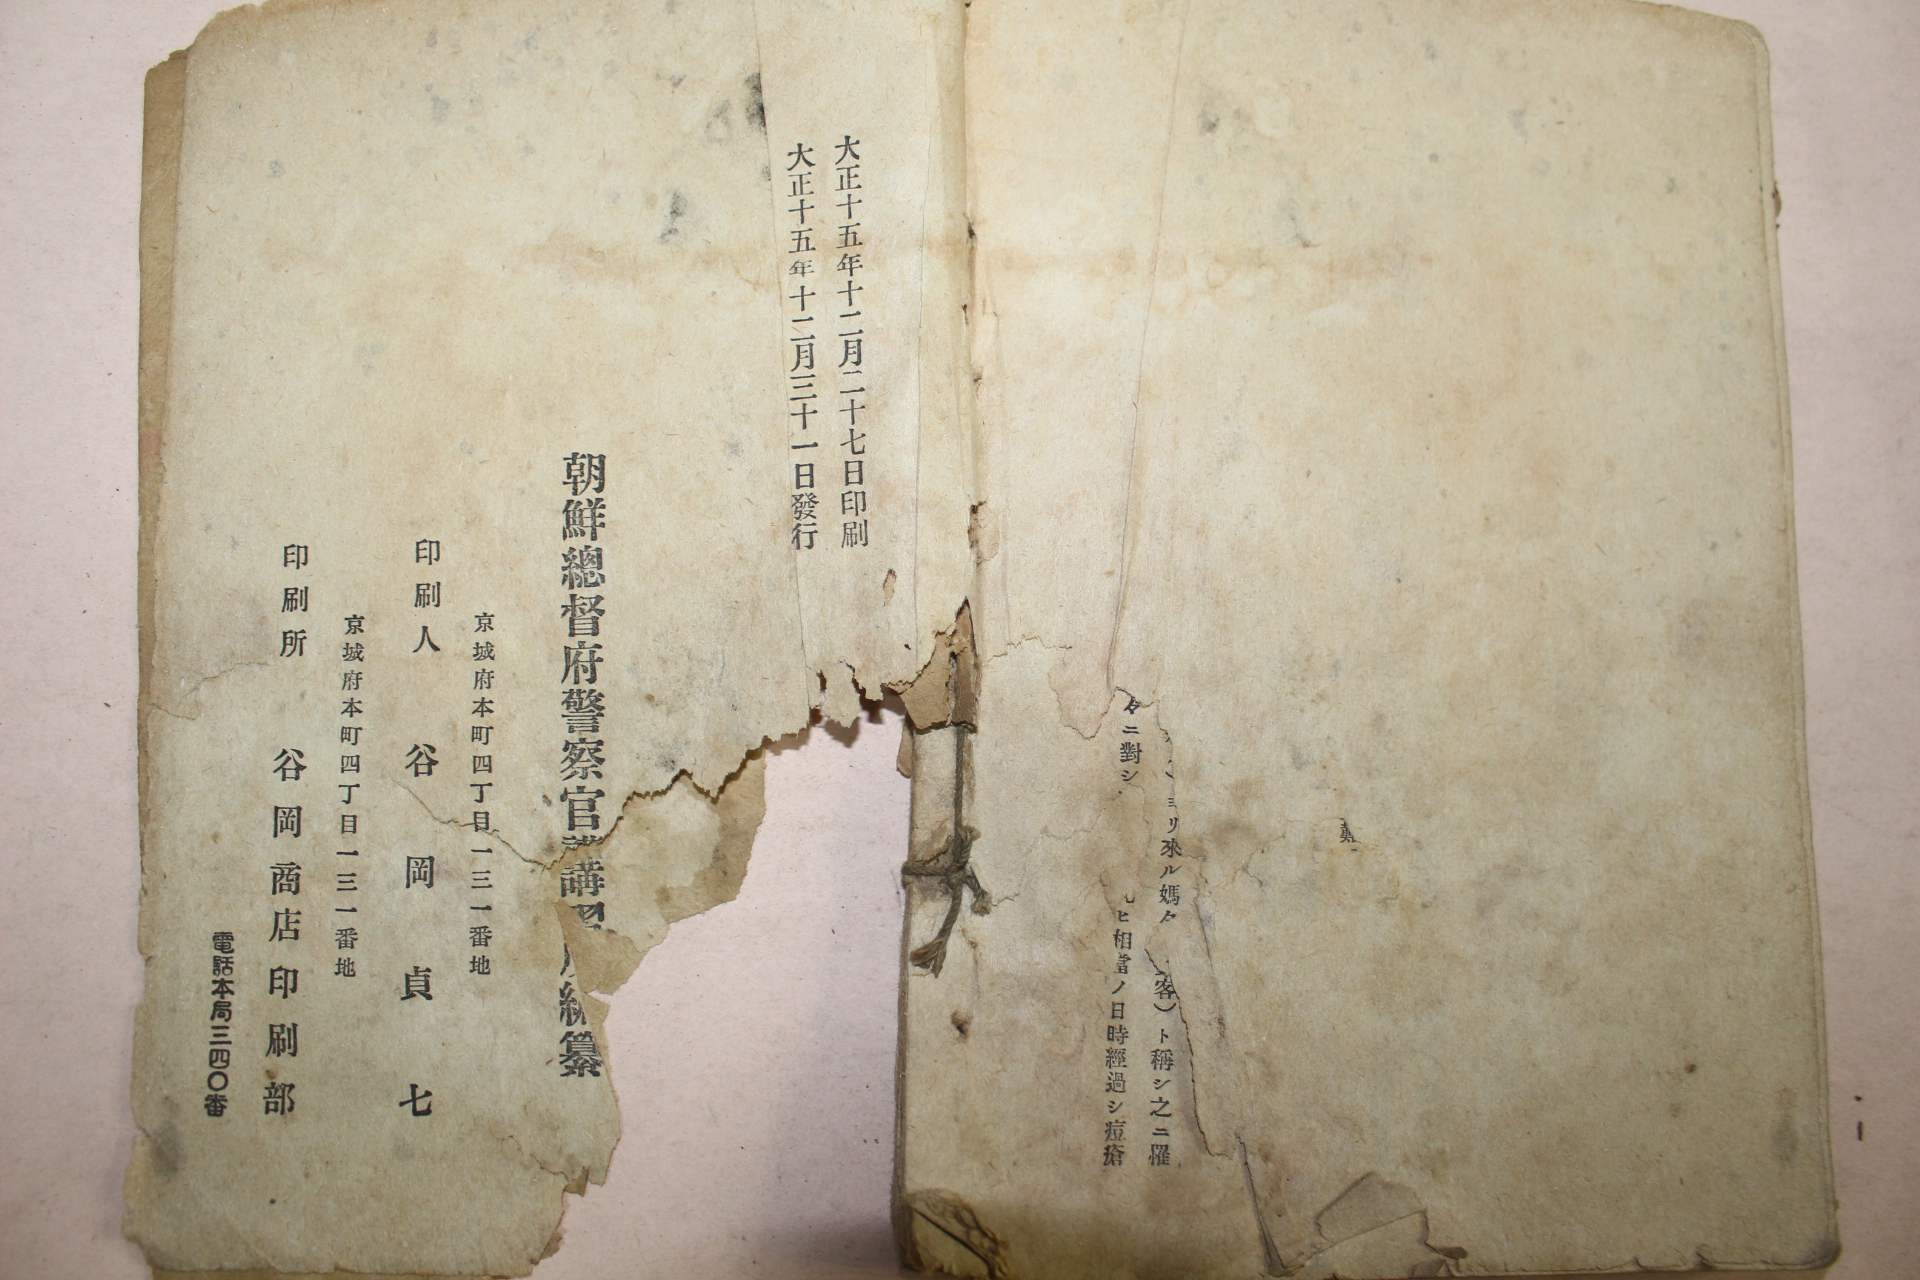 難
ヨリ來ル媽
客）ト稱シ之ニ罹
々ニ對シ
ヒ相當ノ日時經過シ痘瘡
大正十五年十二月二十七日印刷
大正十五年十二月三十一日發行
朝鮮總督府警察官講習所編纂
京城府本町四丁目一三一番地
印刷人 谷岡貞七
京城府本町四丁目一三一番地
印刷所 谷岡商店印刷部
電話本局三四〇番